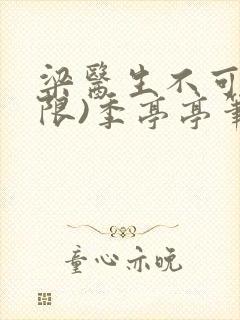 梁醫生不可
限)季亭亭
童心亦晚